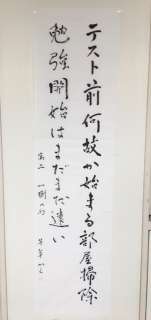 テスト前何故か始まる部屋掃除
勉強開始はまだまだ遠い